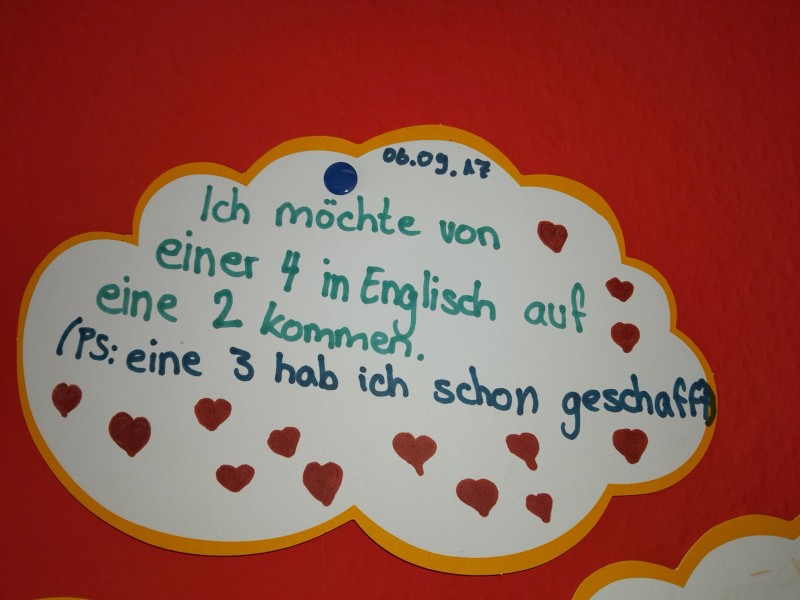 06.09.17
Ich möchte von
einer 4 in Englisch auf
eine 2 kommen.
(PS: eine 3 hab ich schon geschafft)